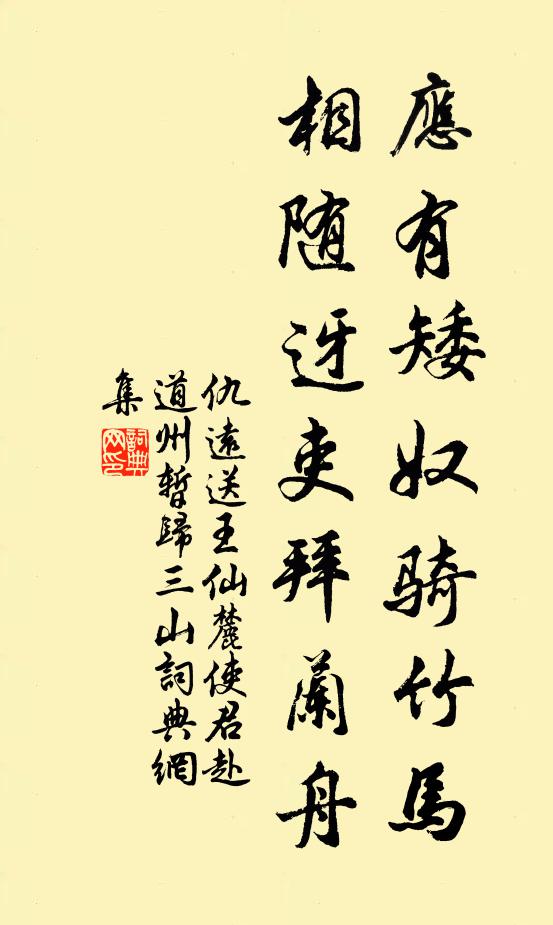 應有矮奴騎竹馬
相随迓吏拜蘭舟
仇遠送王仙麓使君赴
道州暫歸三山詞典網
集
詞典網印